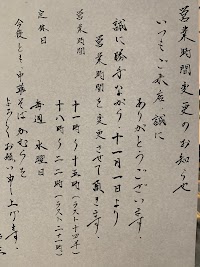 営業時間変更のお知らせ
いつもご来店、誠に
ありがとうございます
誠に勝手ながら十一月一日より
営業時間を変更させて頂きます
営業時間
十一時〜十五時(ラスト十四半)
十八時〜二二時(ラスト二十一時)
定休日
毎週 水曜日
今後とも、中華そばかむらを
よろしくお願い申し上げます。